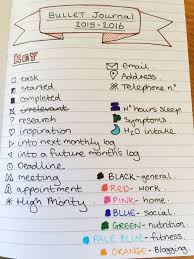 BULLET JOURNAL
2015-2016
KEY
task
started
completed
irrelevant
? research
inspiration
into next monthly log
into a future months log
Deadline
meeting
appointment
High Priority
Email
Address
Telephone n°
N° hours Sleep
Symptoms
H₂O intake
BLACK-general
RED- work
PINK- home
BLUE- social
GREEN- nutrition
PALE BLUE- fitness
ORANGE- Blogging